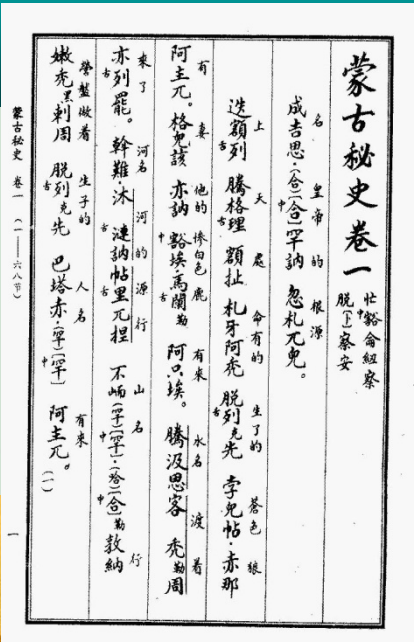 蒙古秘史卷一
忙中豁侖紐察
脫[卜]察安
名 皇帝的 根源
成吉思·(合)[中合]罕訥 忽札兀兒。
上 天 處 命有的 生了的 蒼色 狼
迭額舌列 騰格舌理 額扯 札牙阿禿 脫舌列克先 孛兒帖·赤那
有 妻 他的 慘白色 鹿 有來 水名 渡着
阿主兀。格兒該 亦訥 中豁埃·馬舌闌勒 阿只埃。 騰汲思客 禿勒周
來了 河名 河的源行 山名 行
亦舌列罷。斡難·沐舌漣訥帖舌里兀捏 不峏(罕)[中罕]·(哈)[中合]勒敦納
營盤做着 生子的 人名 有來
嫩禿黑剌周 脫舌列克先 巴塔赤·(罕)[中罕] 阿主兀。(一)
蒙古秘史 卷一 (一——六八節) 一